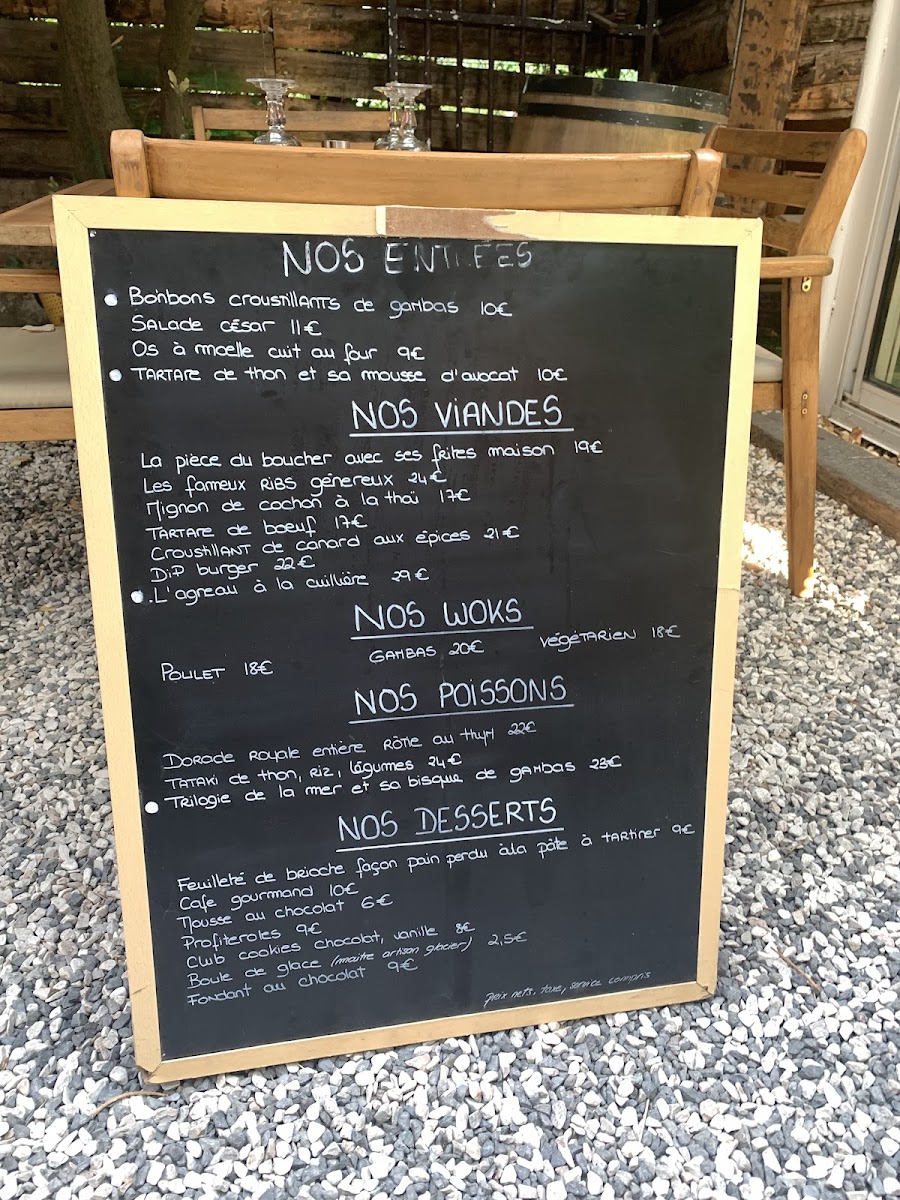 NOS ENTRÉES
Bonbons croustillants de gambas 10€
Salade césar 11€
Os à moelle cuit au four 9€
Tartare de thon et sa mousse d'avocat 10€
NOS VIANDES
La pièce du boucher avec ses frites maison 19€
Les fameux RIBS généreux 24€
Mignon de cochon à la thaï 17€
Tartare de boeuf 17€
Croustillant de canard aux épices 21€
D.P burger 22€
L'agneau à la cuillière 29€
NOS WOKS
Poulet 18€ Gambas 20€ Végétarien 18€
NOS POISSONS
Dorade Royale entière Rôtie au thym 22€
Tataki de thon, riz, légumes 24€
Trilogie de la mer et sa bisque de gambas 23€
NOS DESSERTS
Feuilleté de brioche façon pain perdu à la pâte à tartiner 9€
Cafe gourmand 10€
Mousse au chocolat 6€
Profiteroles 9€
Club cookies chocolat, vanille 8€
Boule de glace (maitre artisan glacier) 2,5€
Fondant au chocolat 9€
prix nets, taxe, service compris